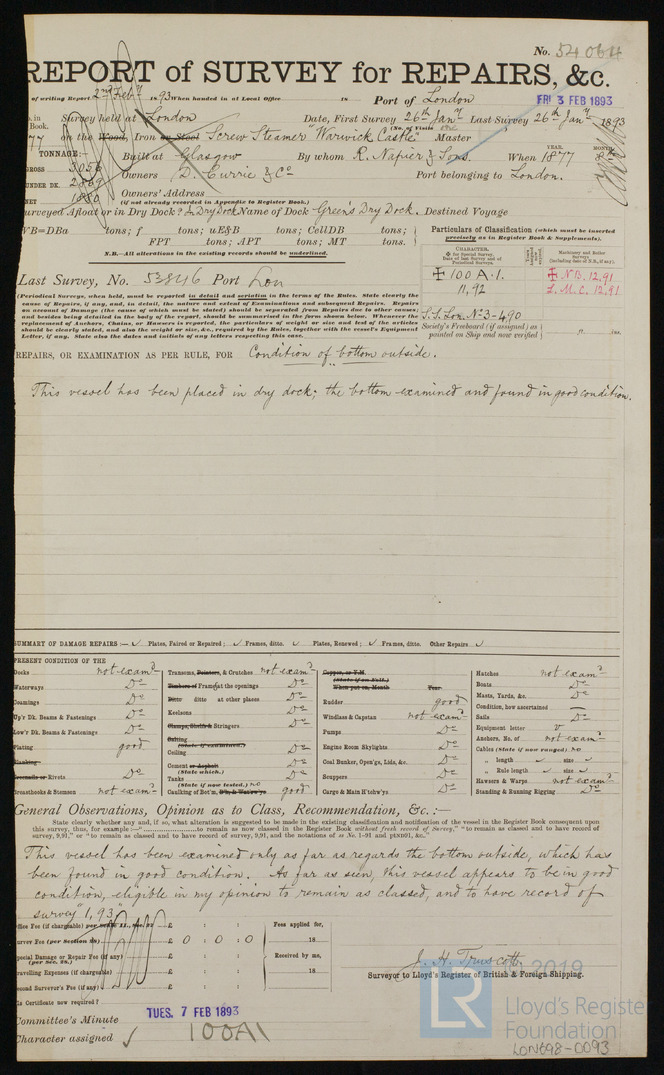 No. 54064
REPORT of SURVEY for REPAIRS, &c.
of writing Report 2nd Feby 1893 When handed in at Local Office 18 Port of London
FRI 3 FEB 1893
Survey held at London Date, First Survey 26th Jany Last Survey 26th Jany 1893
Book. (No. of Visits one)
77 on the Wood, Iron or Steel Screw Steamer "Warwick Castle" Master
TONNAGE:— Built at Glasgow By whom R. Napier & Sons. When 1877 YEAR. MONTH 8th
GROSS 3056
UNDER DK. 2869 Owners D. Currie & Co Port belonging to London.
NET 1880 Owners' Address
(if not already recorded in Appendix to Register Book.)
Surveyed Afloat or in Dry Dock? In Dry Dock Name of Dock Green's Dry Dock. Destined Voyage
WB=DBa tons; f tons; uE&B tons; CellDB tons;
FPT tons; APT tons; MT tons.
N.B.—All alterations in the existing records should be underlined.
Particulars of Classification (which must be inserted
precisely as in Register Book & Supplements).
CHARACTER.
for Special Survey.
Date of last Survey and of
Periodical Surveys.
Machinery and Boiler
Surveys
(including date of N.B., if any).
100 A.1. N.B. 12,91
11,92 L.M.C. 12,91
S.S. Lon. No 3-490
Society's Freeboard (if assigned) as
painted on Ship and now verified " ins.
Last Survey, No. 53846 Port Lon
(Periodical Surveys, when held, must be reported in detail and seriatim in the terms of the Rules. State clearly the
cause of Repairs, if any, and, in detail, the nature and extent of Examinations and subsequent Repairs. Repairs
on account of Damage (the cause of which must be stated) should be separated from Repairs due to other causes;
and besides being detailed in the body of the report, should be summarised in the form shown below. Whenever the
replacement of Anchors, Chains, or Hawsers is reported, the particulars of weight or size and test of the articles
should be clearly stated, and also the weight or size, &c., required by the Rules, together with the vessel's Equipment
Letter, if any. State also the dates and initials of any letters respecting this case.
REPAIRS, OR EXAMINATION AS PER RULE, FOR Condition of bottom outside.
This vessel has been placed in dry dock; the bottom examined and found in good condition.
SUMMARY OF DAMAGE REPAIRS:— Plates, Faired or Repaired; Frames, ditto. Plates, Renewed; Frames, ditto. Other Repairs
PRESENT CONDITION OF THE
Decks not examd
Waterways Do
Coamings Do
Up'r Dk. Beams & Fastenings Do
Low'r Dk. Beams & Fastenings Do
Plating good
Planking
Treenails or Rivets Do
Breasthooks & Stemson not examd
Transoms, Pointers, & Crutches not examd
Timbers of Frame at the openings Do
Ditto ditto at other places Do
Keelsons Do
Clamps, Shelfs & Stringers Do
Salting
(State if examined.)
Ceiling Do
Cement or Asphalt Do
(State which.)
Tanks Do
(State if now tested.) no
Caulking of Bot'm, D'k, & Wat'rw'ys good
Copper, or Y.M.
(State if on Felt.)
When put on, Month Year
Rudder good
Windlass & Capstan not examd
Pumps Do
Engine Room Skylights Do
Coal Bunker, Open'gs, Lids, &c. Do
Scuppers Do
Cargo & Main H'tchw'ys Do
Hatches not examd
Boats Do
Masts, Yards, &c. Do
Condition, how ascertained
Sails Do
Equipment letter V
Anchors, No. of not examd
Cables (State if now ranged) no
" length size
" Rule length size
Hawsers & Warps not examd
Standing & Running Rigging Do
General Observations, Opinion as to Class, Recommendation, &c.:—
State clearly whether any and, if so, what alteration is suggested to be made in the existing classification and notification of the vessel in the Register Book consequent upon
this survey, thus, for example:—" to remain as now classed in the Register Book without fresh record of Survey," "to remain as classed and to have record of
survey, 9,91," or "to remain as classed and to have record of survey, 9,91, and the notations of ss No. 1-91 and ptND91, &c."
This vessel has been examined only as far as regards the bottom outside, which has
been found in good condition. As far as seen, this vessel appears to be in good
condition, eligible in my opinion to remain as classed, and to have record of
survey "1,93"
Office Fee (if chargeable) £ : : Fees applied for,
Survey Fee (per Section 28) £ 0 : 0 : 0 18
Special Damage or Repair Fee (if any) £ : : Received by me,
(per Sec. 28.)
Travelling Expenses (if chargeable) £ : : 18
Second Surveyor's Fee (if any) £ : :
Is Certificate now required?
J. H. Truscott.
Surveyor to Lloyd's Register of British & Foreign Shipping.
Committee's Minute TUES. 7 FEB 1893
Character assigned 100A1
2019
LR
Lloyd's Register
Foundation
LON698-0093